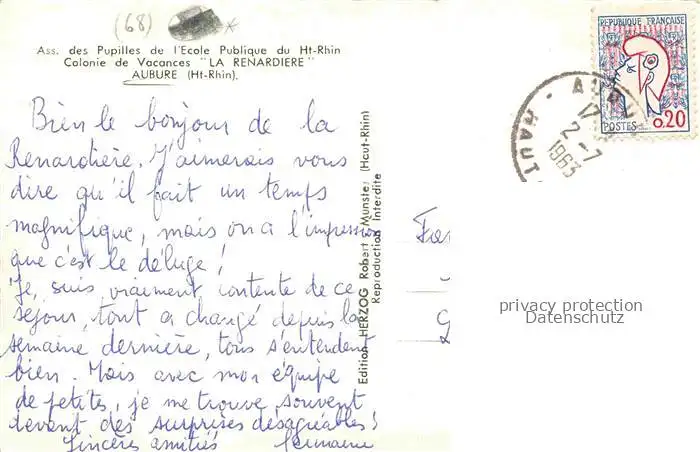 (68)
Ass. des Pupilles de l'Ecole Publique du Ht-Rhin
Colonie de Vacances "LA RENARDIERE"
AUBURE (Ht-Rhin).
Bien le bonjour de la
Renardière. J'aimerais vous
dire qu'il fait un temps
magnifique, mais on a l'impression
que c'est le déluge!
Je, suis vraiment contente de ce
séjour, tout a changé depuis la
semaine dernière, tous s'entendent
bien. Mais avec mon équipe
de petites, je me trouve souvent
devant des surprises désagréables!
Sincères amitiés Germaine
Edition HERZOG Robert Munster (Haut-Rhin)
Reproduction Interdite
REPUBLIQUE FRANÇAISE
POSTES 0,20
17
2-7
1963
HAUT
privacy protection
Datenschutz